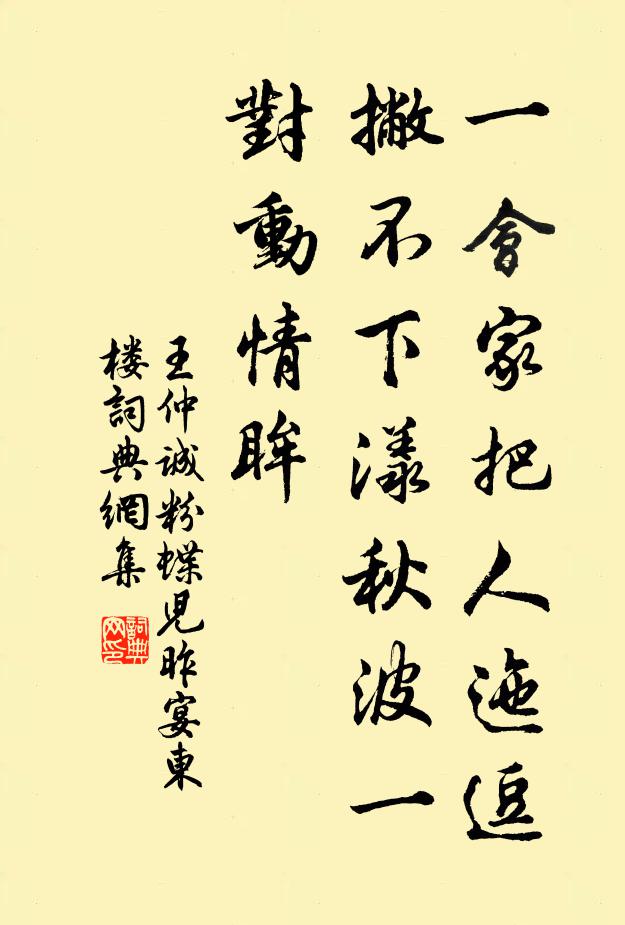 一會家把人迤逗
撇不下漾秋波一
對動情眸
王仲誠粉蝶児昨宴東
楼詞典網集
詞典
网印